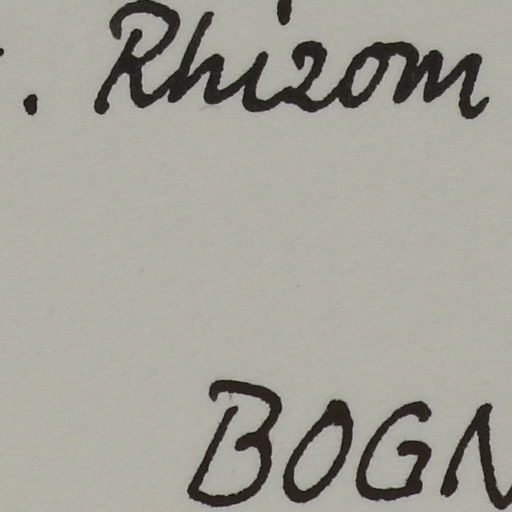 . Rhizom
BOGN